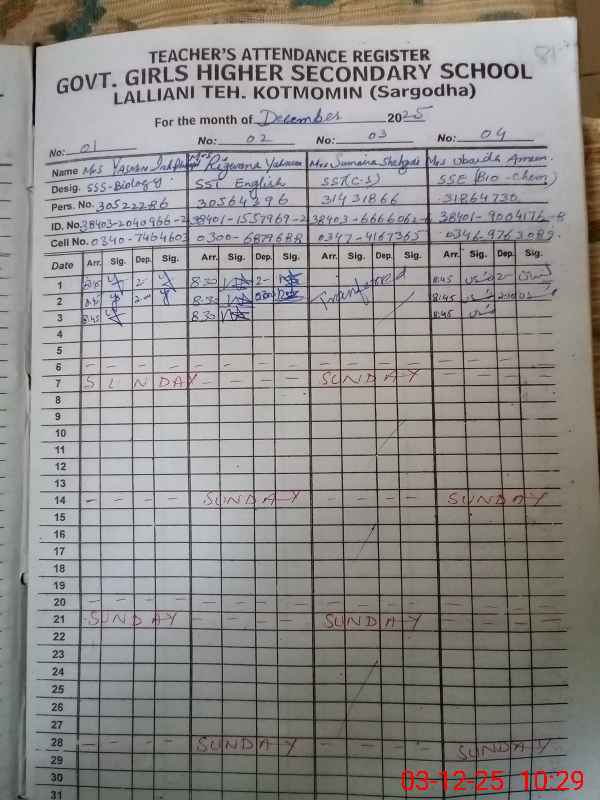 81
TEACHER'S ATTENDANCE REGISTER
GOVT. GIRLS HIGHER SECONDARY SCHOOL
LALLIANI TEH. KOTMOMIN (Sargodha)
For the month of December 2025
No: 01 No: 02 No: 03 No: 04
Name Mrs Yasmin Mrs Rizwana Yasmeen Mrs Sumaira Shehzadi Mrs Ubaida Ameen
Desig. SSS-Biology SST English SST(C-S) SSE (Bio-Chem)
Pers. No. 30522286 30564396 31431866 31864730
ID. No. 38403-2040966-2 38401-1557969-2 38403-6666062-6 38401-9004176-8
Cell No. 0340-7464603 0300-6879688 0347-4167365 0346-9763089
Date Arr. Sig. Dep. Sig. Arr. Sig. Dep. Sig. Arr. Sig. Dep. Sig. Arr. Sig. Dep. Sig.
1 8:30 2- 8:45
2 8:30 Tranferred 8:45
3 8:45 8:30 8:45
4
5
6
7 SUNDAY SUNDAY
8
9
10
11
12
13
14 SUNDAY SUNDAY
15
16
17
18
19
20
21 SUNDAY SUNDAY
22
23
24
25
26
27
28 SUNDAY SUNDAY
29
30
31
03-12-25 10:29